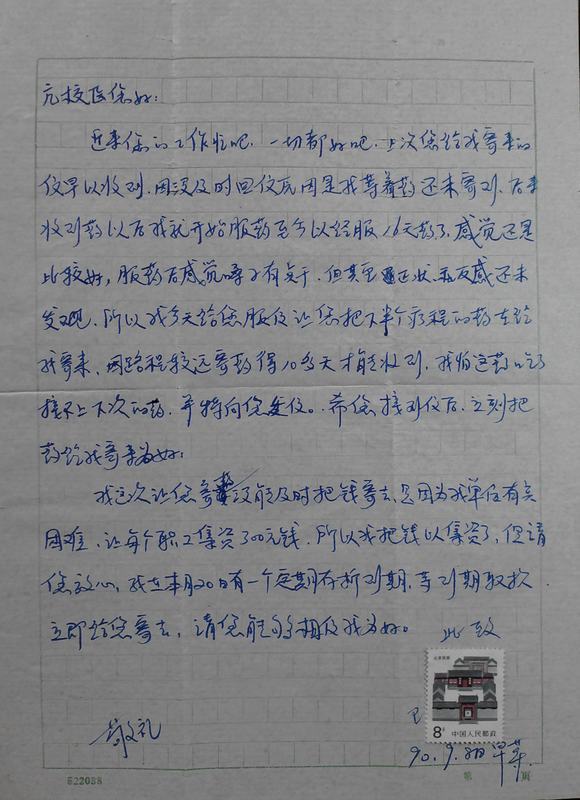 亢校医您好：
近来您的工作忙吧，一切都好吧，上次您给我寄来的
信早以收到，因没及时回信原因是我等着药还未寄到，后来
收到药以后我就开始服药至今以经服16天药了，感觉还是
比较好，服药后感觉嗓子有点干，但其它症状和反感还未
发现，所以我今天给您服信让您把下半个疗程的药在给
我寄来，因路程较远寄药得10多天才能收到，我怕这药吃了
接不上下次的药，并特向您发信。希您接到信后，立刻把
药给我寄来为好；
我这次让您寄药没能及时把钱寄去，是因为我单位有关
困难，让每个职工集资300元钱，所以我把钱以集资了，但请
您放心，我在本月20日有一个定期存折到期，等到期取款
立即给您寄去，请您能够相信我为好。 此致
敬礼
北京民居
8分
中国人民邮政
90.9.8日早草
第 页
522038